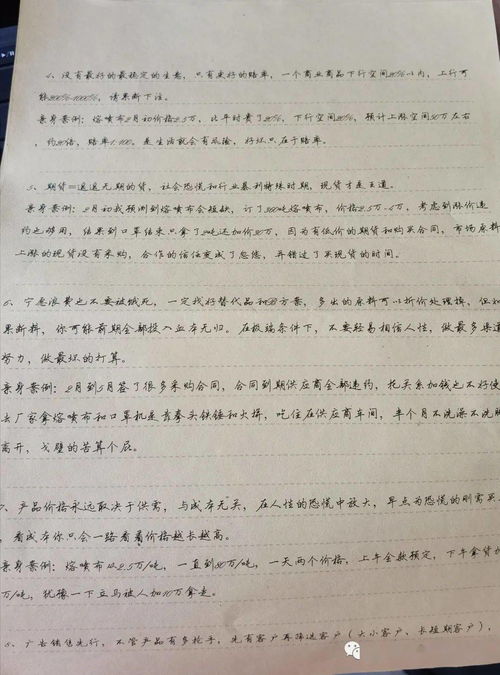 4、没有最好的最稳定的生意，只有更好的赔率，一个商业商品下行空间20%以内，上行可
能200%-1000%，请果断下注。
亲身案例：熔喷布2月初价格2.5万，比平时贵了20%，下行空间20%，预计上涨空间50万左右
，约20倍，赔率1:100。是生活就会有风险，好坏只在于赔率。
5、期货=遥遥无期的货，社会恐慌和行业暴利特殊时期，现货才是王道。
亲身案例：2月初我预测到熔喷布会短缺，订了 吨熔喷布，价格2.5万-4万，考虑到涨价违
约也够用，结果到口罩结束只拿了 吨还加价20万，因为有低价的期货和购买合同，市场原料
上涨的现货没有采购，合作的信任变成了忽悠，弄错过了买现货的时间。
6、宁愿浪费也不要被饿死，一定找好替代品和B方案，多出的原料可以折价处理掉，但如
果断料，你可能前期全部投入血本无归。在极端条件下，不要轻易相信人性，做最多渠道
努力，做最坏的打算。
亲身案例：2月到5月签了很多采购合同，合同到期供应商全部违约，托关系加钱也不好使
去厂家拿熔喷布和口罩机是靠拳头铁锤和火拼，吃住在供应商车间，半个月不洗澡不洗脚
离开，戈壁的苦算个屁。
、产品价格永远取决于供需，与成本无关，在人性的恐慌中放大，早点为恐慌的刚需买
，看成本你只会一路看着价格越长越高。
亲身案例：熔喷布从2.5万/吨，一直到50万/吨，一天两个价格，上午全款预定，下午拿货加
万/吨，犹豫一下立马被人加10万拿走。
8、广告销售先行，不管产品有多抢手，先有客户再筛选客户（大小客户、长短期客户），